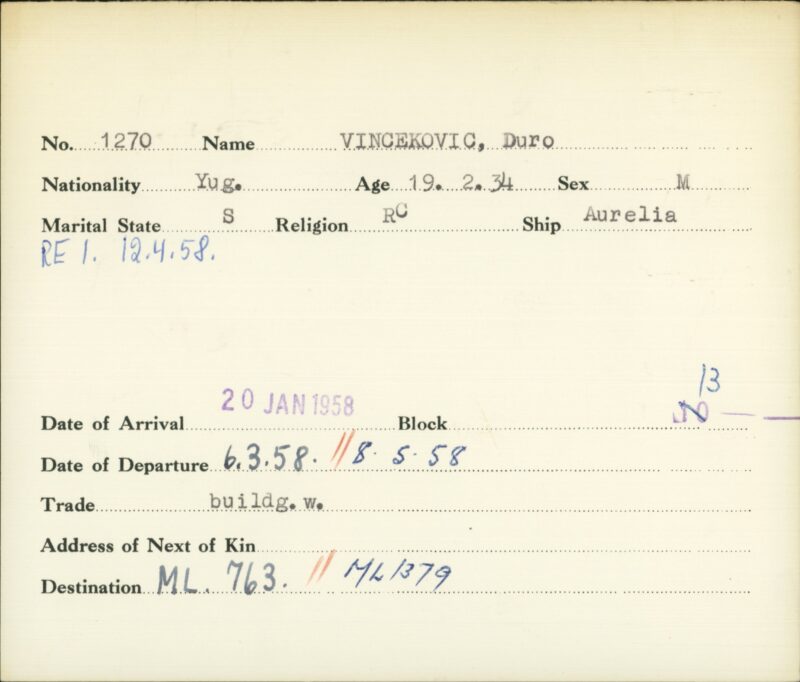 No. 1270 Name VINCEKOVIC, Duro
Nationality Yug. Age 19. 2. 34 Sex M
Marital State S Religion RC Ship Aurelia
RE 1. 12.4.58.
13
Date of Arrival 20 JAN 1958 Block
Date of Departure 6.3.58. // 8. 5. 58
Trade buildg. w.
Address of Next of Kin
Destination ML. 763. // ML 1379